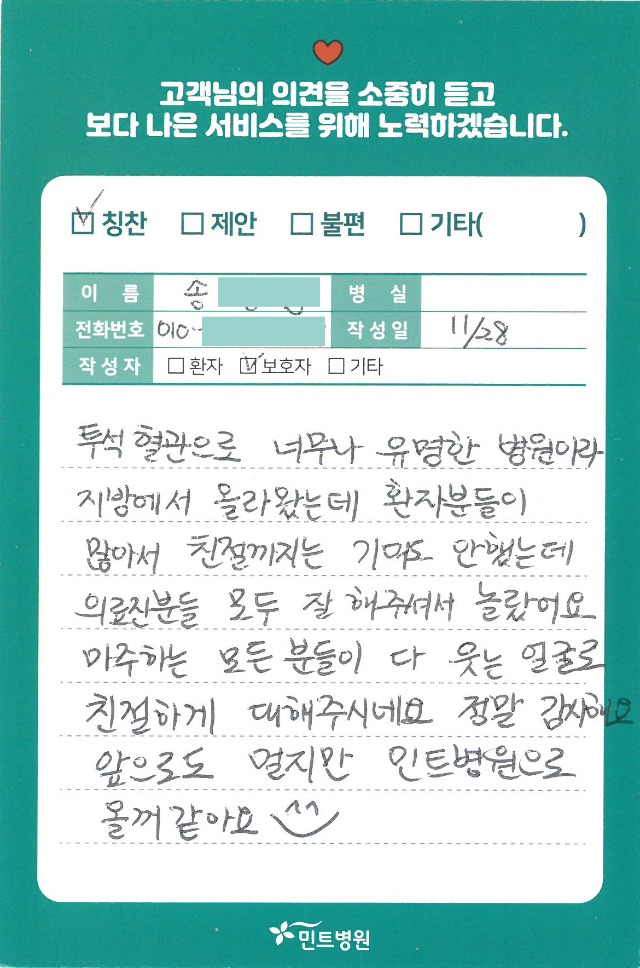 고객님의 의견을 소중히 듣고
보다 나은 서비스를 위해 노력하겠습니다.
☑ 칭찬 ☐ 제안 ☐ 불편 ☐ 기타( )
이 름 송 병 실
전화번호 010- 작성일 11/28
작성자 ☐ 환자 ☑ 보호자 ☐ 기타
투석 혈관으로 너무나 유명한 병원이라
지방에서 올라왔는데 환자분들이
많아서 친절까지는 기대도 안했는데
의료진분들 모두 잘 해주셔서 놀랐어요
마주하는 모든 분들이 다 웃는 얼굴로
친절하게 대해주시네요 정말 감사해요
앞으로도 멀지만 민트병원으로
올꺼 같아요 ^^
민트병원